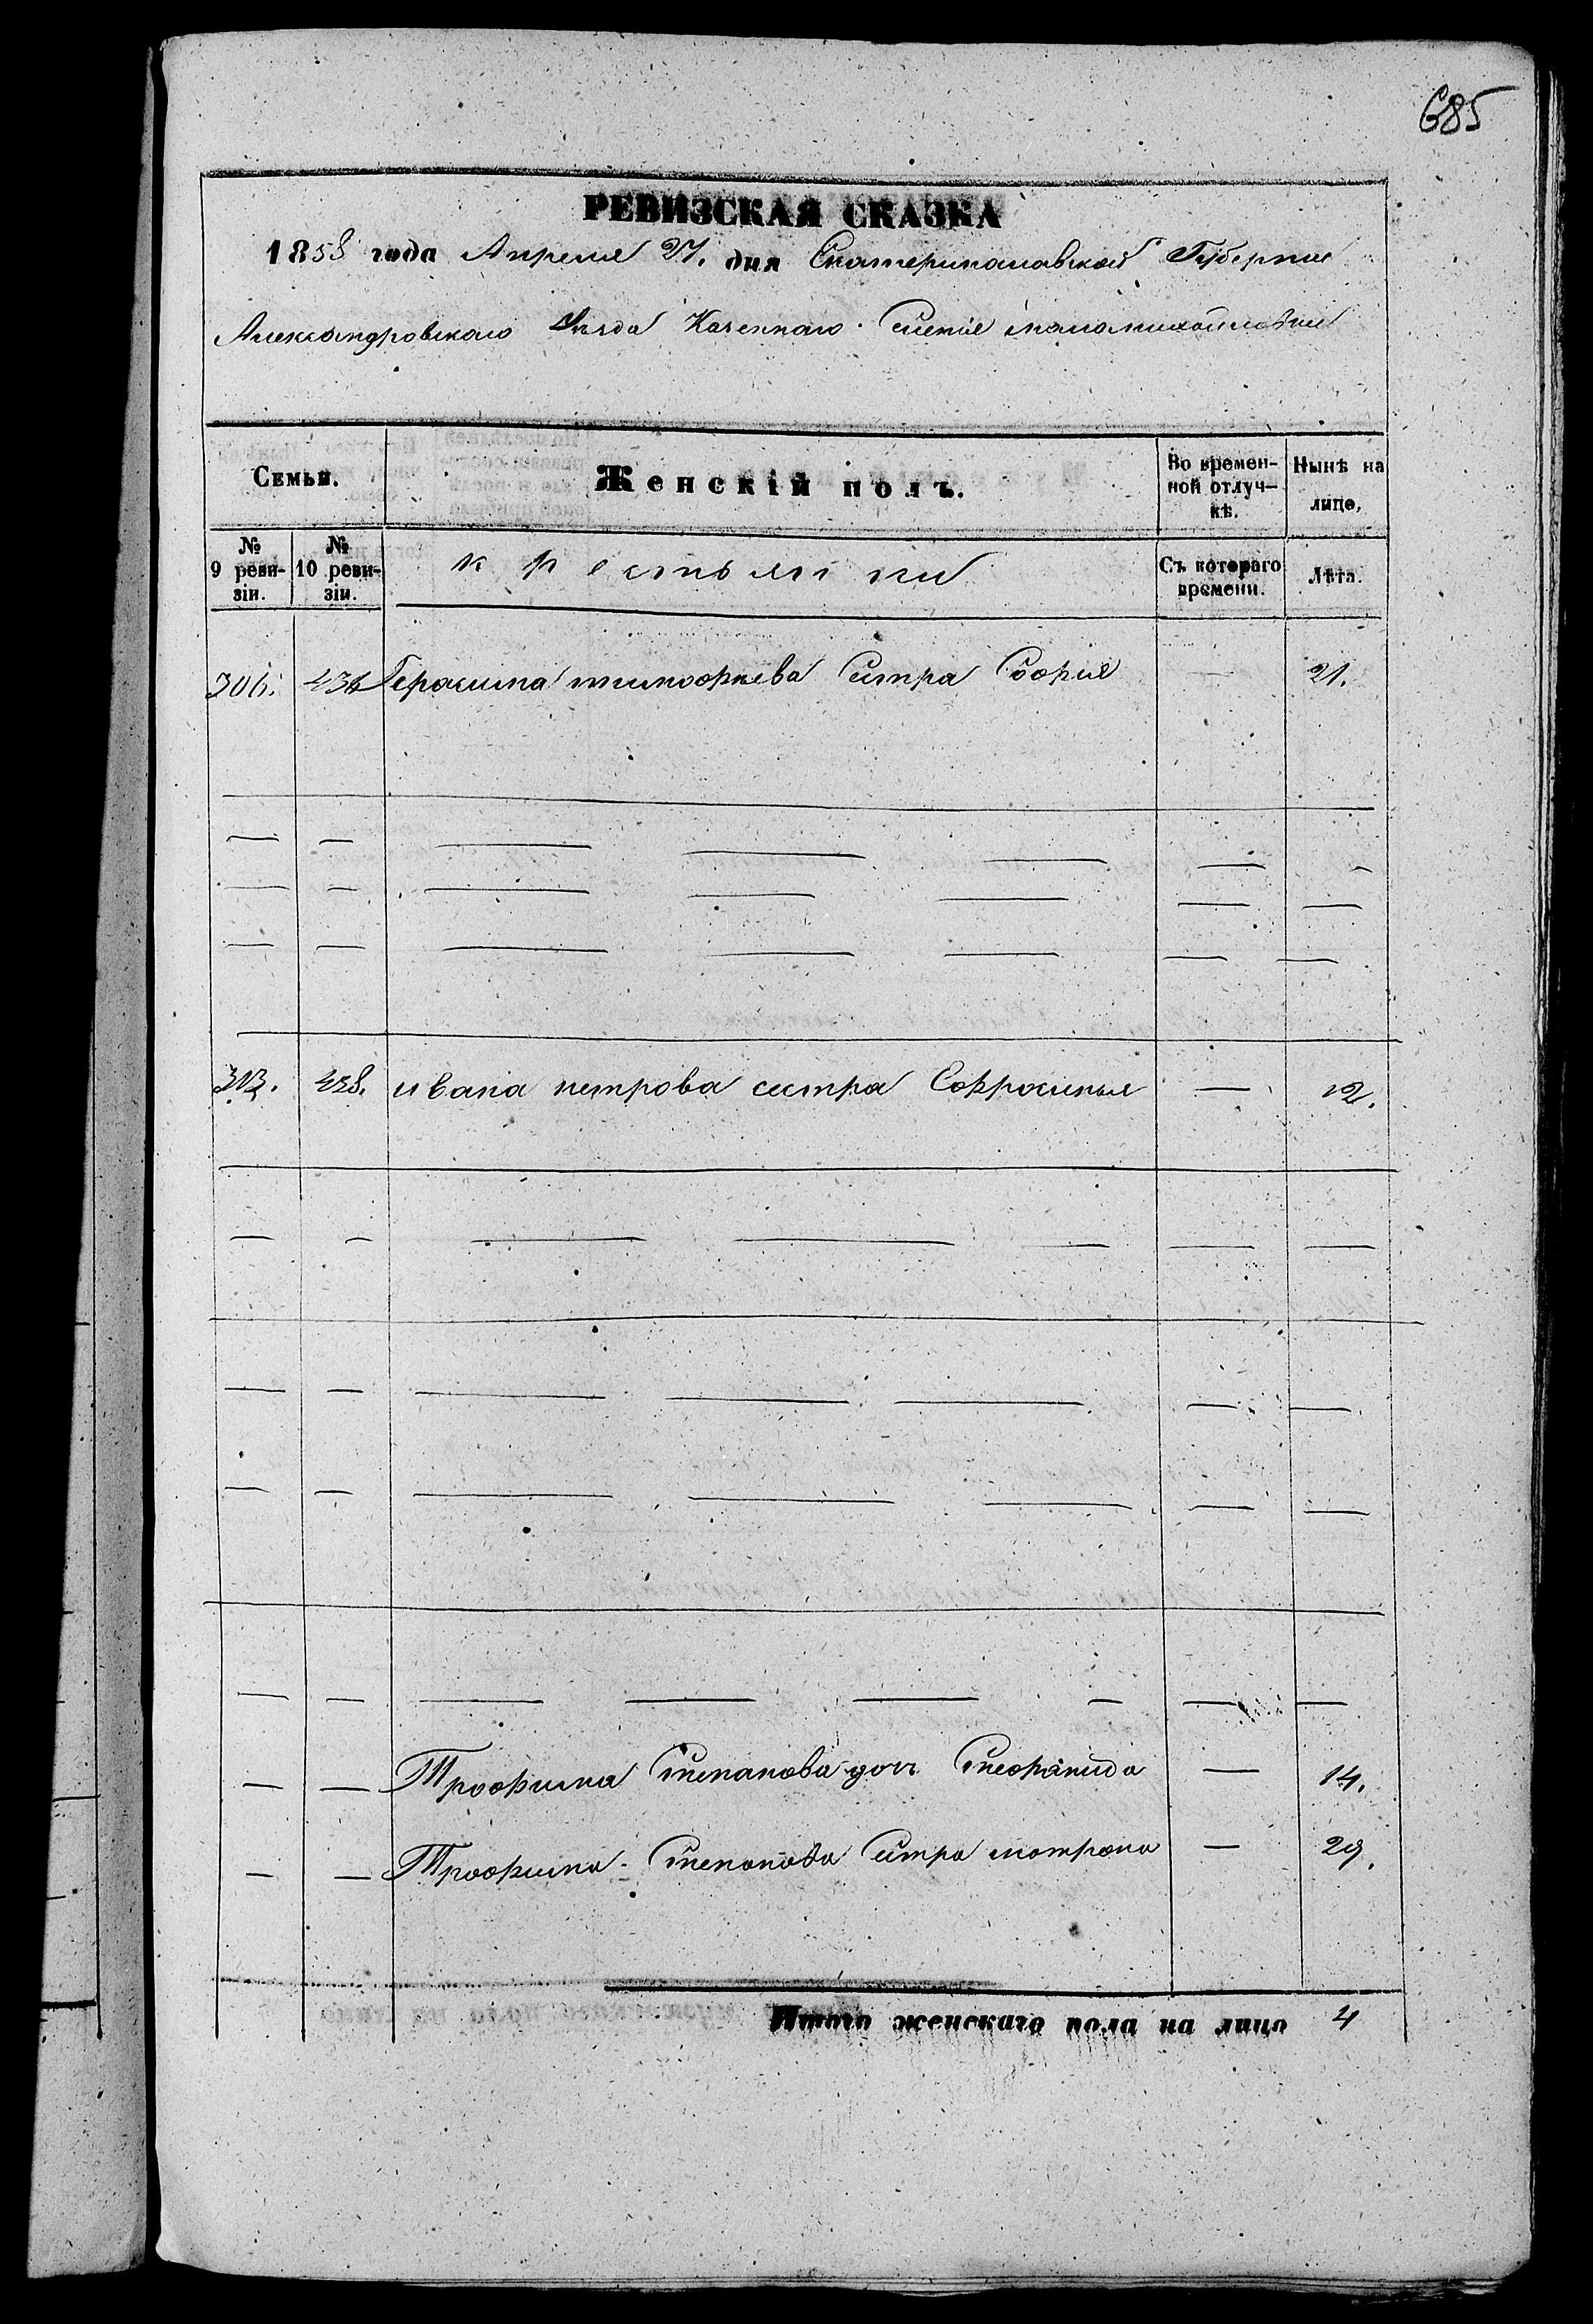 685
РЕВИЗСКАЯ СКАЗКА
1858 года Апреля 27. дня Екатеринославской Губернии
Александровского Уезда Казенного Селения маломихайловки
Семьи.
Женскій полъ.
Во времен-
ной отлуч-
кѣ.
Нынѣ на
лице,
№
9 реви-
зіи.
№
10 реви-
зіи.
крестьянки
Съ котораго
времени.
Лѣта.
306. Герасима тимофѣева Сестра Софья — 21.
313. 438. ивана петрова сестра Ефросинья — 12.
— — Трофима Степанова дочь Феофанида — 14.
— — Трофима Степанова Сестра матрона — 29.
Итого женскаго пола на лицо 4